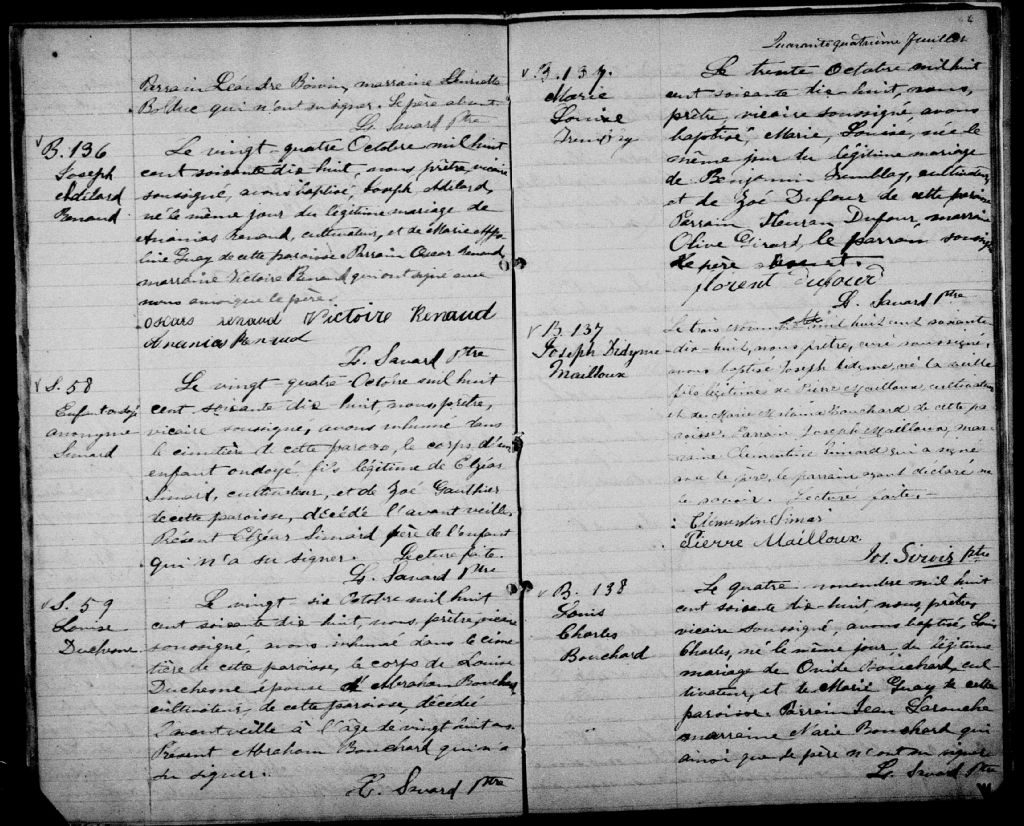 Parrain Léandre Boivin, marraine Henriette
Bolduc qui n'ont su signer. Le père absent
L. Savard Ptre
B. 136
Joseph
Adélard
Renaud
Le vingt-quatre Octobre mil huit
cent soixante dix huit, nous, prêtre, vicaire
soussigné, avons baptisé Joseph Adélard,
né le même jour du légitime mariage de
Ananias Renaud, cultivateur, et de Marie Appo
line Guay de cette paroisse. Parrain Oscar Renaud,
marraine Victoire Renaud qui ont signé avec
nous ainsi que le père.
Oscars renaud Victoire Renaud
Ananias Renaud
L. Savard Ptre
S. 58
Enfant ondoyé
anonyme
Simard
Le vingt-quatre Octobre mil huit
cent soixante dix huit, nous, prêtre,
vicaire soussigné, avons inhumé dans
le cimetière de cette paroisse, le corps d'un
enfant ondoyé, fils légitime de Elzéar
Simard, cultivateur, et de Zoé Gauthier
de cette paroisse, décédé l'avant veille.
Présent Elzéar Simard père de l'enfant
qui n'a su signer. Lecture faite.
L. Savard Ptre
S. 59
Louise
Duchesne
Le vingt six Octobre mil huit
cent soixante dix huit, nous, prêtre, vicaire
soussigné, avons inhumé dans le cime
tière de cette paroisse, le corps de Louise
Duchesne épouse d'Abraham Bouchard,
cultivateur, de cette paroisse, décédée
l'avant veille à l'âge de vingt huit ans
Présent Abraham Bouchard qui n'a
su signer.
L. Savard Ptre
Quarante quatrième feuillet
B. 137.
Marie
Louise
Tremblay
Le trente Octobre mil huit
cent soixante dix huit, nous,
prêtre, vicaire soussigné, avons
baptisé, Marie, Louise, née le
même jour du légitime mariage
de Benjamin Tremblay, cultivateur,
et de Zoé Dufour de cette paroisse
Parrain Fleuran Dufour, marraine
Olive Girard, le parrain soussigné
le père absent.
florent dufourd
L. Savard Ptre
B. 137
Joseph Didyme
Mailloux
Le trois novembre mil huit cent soixante
dix-huit, nous, prêtre, curé soussigné,
avons baptisé Joseph Didyme, né la veille
fils légitime de Pierre Mailloux, cultivateur,
et de Marie Bouchard de cette pa
roisse. Parrain Joseph Mailloux, mar
raine Clémentine Simard qui a signé
avec le père, le parrain ayant déclaré ne
le savoir. Lecture faite.
Clémentin Simar
Pierre Mailloux
Jos. Sirois ptre
B. 138
Louis
Charles
Bouchard
Le quatre novembre mil huit
cent soixante dix-huit, nous, prêtre,
vicaire soussigné, avons baptisé, Louis
Charles, né le même jour, du légitime
mariage de Ovide Bouchard, cul
tivateur, et de Marie Guay de cette
paroisse. Parrain Jean Larouche
marraine Marie Bouchard qui
ainsi que le père n'ont su signer
L. Savard Ptre